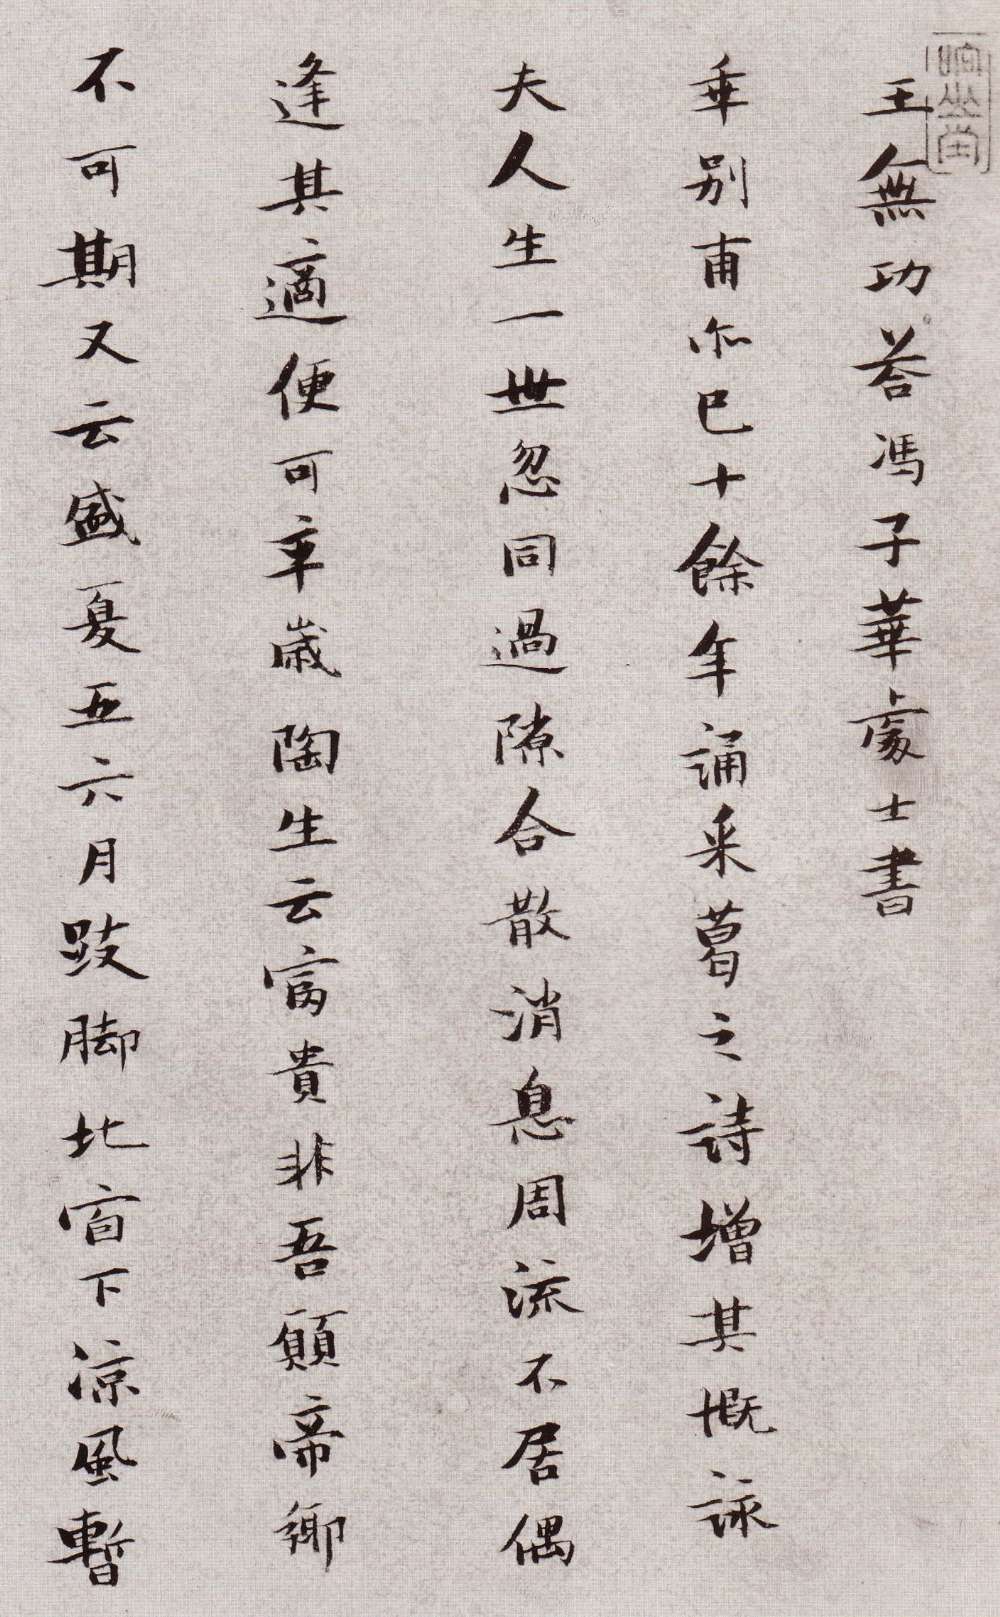 王無功答馮子華處士書
乖別甫尔已十餘年誦采葛之詩增其慨詠
夫人生一世忽同過隙合散消息周流不居偶
逢其適便可卒歲陶生云富貴非吾願帝鄉
不可期又云盛夏五六月跂脚北窗下涼風暫